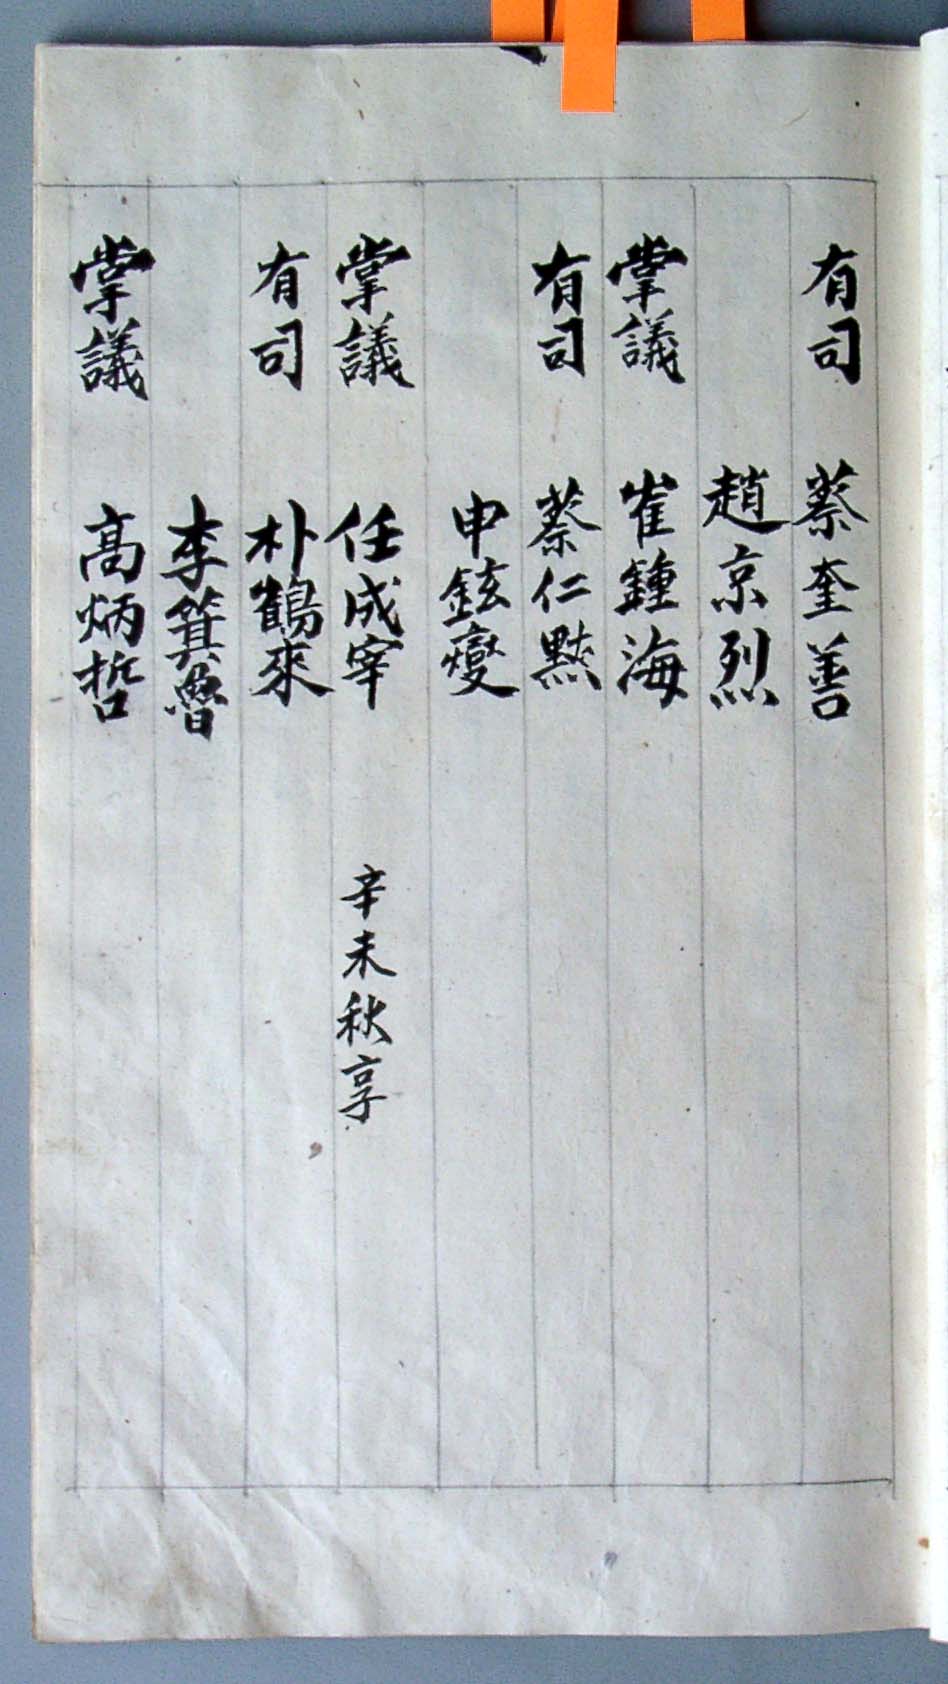 有司 蔡奎善
趙京烈
掌議 崔鍾海
有司 蔡仁默
申鉉燮
掌議 任成宰 辛未秋享
有司 朴鶴來
李箕魯
掌議 高炳哲